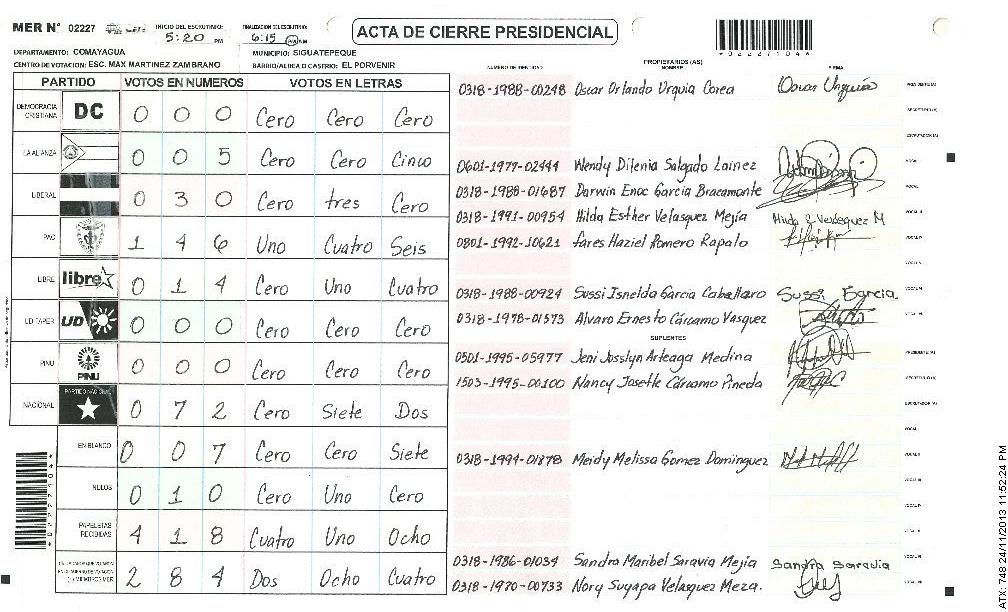 MER N° 02227
INICIO DEL ESCRUTINIO: 5:20 PM
FINALIZACION DEL ESCRUTINIO: 6:15
ACTA DE CIERRE PRESIDENCIAL
*022271044*
DEPARTAMENTO: COMAYAGUA
MUNICIPIO: SIGUATEPEQUE
CENTRO DE VOTACION: ESC. MAX MARTINEZ ZAMBRANO
BARRIO/ALDEA O CASERIO: EL PORVENIR
PARTIDO VOTOS EN NUMEROS VOTOS EN LETRAS
DEMOCRACIA CRISTIANA DC 0 0 0 Cero Cero Cero
LA ALIANZA 0 0 5 Cero Cero Cinco
LIBERAL 0 3 0 Cero tres Cero
PAC 1 4 6 Uno Cuatro Seis
LIBRE libre 0 1 4 Cero Uno Cuatro
UD FAPER UD 0 0 0 Cero Cero Cero
PINU PINU 0 0 0 Cero Cero Cero
NACIONAL PARTIDO NACIONAL 0 7 2 Cero Siete Dos
EN BLANCO 0 0 7 Cero Cero Siete
NULOS 0 1 0 Cero Uno Cero
PAPELETAS RECIBIDAS 4 1 8 Cuatro Uno Ocho
2 8 4 Dos Ocho Cuatro
NUMERO DE IDENTIDAD PROPIETARIOS (AS) NOMBRE FIRMA
0318-1988-00248 Oscar Orlando Urquia Corea Oscar Urquia
0601-1979-02444 Wendy Ditenia Salgado Lainez
0318-1988-01687 Darwin Enoc Garcia Bracamonte
0318-1991-00954 Hilda Esther Velasquez Mejía Hilda E Velasquez M
0801-1992-10621 Fares Haziel Romero Rapalo
0318-1988-00924 Sussi Isnelda Garcia Caballero Sussi Garcia
0318-1978-01573 Alvaro Ernesto Cárcamo Vasquez
SUPLENTES
0501-1995-05977 Jeni Josslyn Arteaga Medina
1503-1995-00100 Nancy Josette Cárcamo Pineda
0318-1994-01878 Meidy Melissa Gomez Dominguez
0318-1986-01034 Sandra Maribel Saravia Mejía Sandra Saravia
0318-1970-00733 Nory Suyapa Velasquez Meza.
ATX-748 24/11/2013 11:52:24 PM